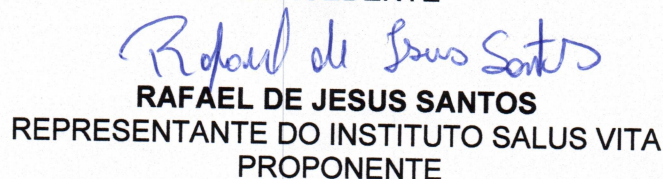 Rafael de Jesus Santos
RAFAEL DE JESUS SANTOS
REPRESENTANTE DO INSTITUTO SALUS VITA
PROPONENTE